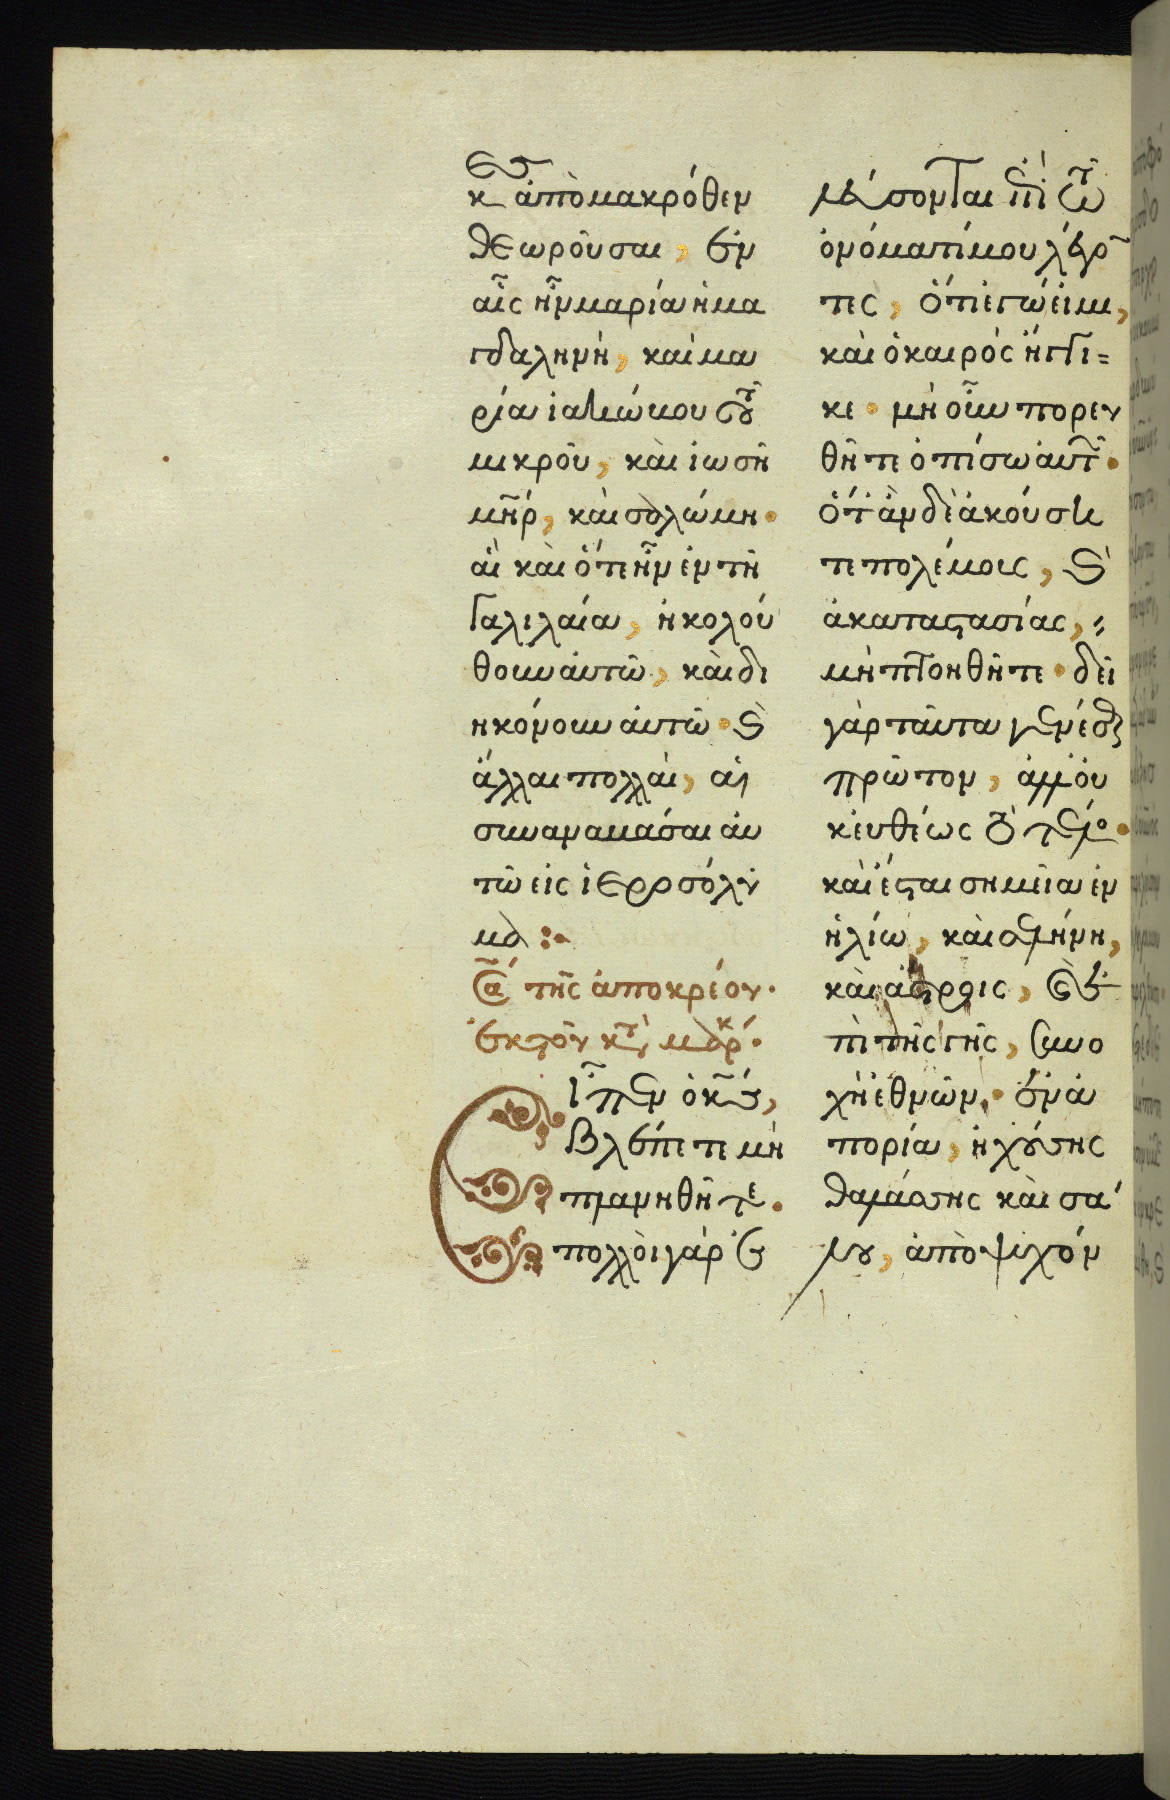 κες ἀπὸ μακρόθεν
θεωροῦσαι, ἐν
αἷς ἦν μαρία ἡ μα
γδαληνή, καὶ μα
ρία ἰακώβου τοῦ
μικροῦ, καὶ ἰωσῆ
μη̃ρ, καὶ σαλώμη·
αἳ καὶ ὅτε ἦν ἐν τῆ
Γαλιλαία, ἠκολού
θουν αὐτῶ, καὶ δι
ηκόνουν αὐτῶ· καὶ
ἄλλαι πολλαί, αἱ
συναναβᾶσαι αὐ
τῶ εἰς ἱεροσόλυ
μα :·
Σα τῆς ἀποκρέου·
ἐκ τοῦ κατὰ
Εἶπεν ὁ κς,
βλέπετε μὴ
πλανηθῆτε·
πολλοὶ γὰρ ἐ
λεύσονται ἐπὶ τῶ
ὀνόματί μου λέγον
τες, ὅτι ἐγώ εἰμι,
καὶ ὁ καιρὸς ἤγγι=
κε· μὴ οὖν πορευ
θῆτε ὀπίσω αὐτῶν·
ὅταν δὲ ἀκούση
τε πολέμους, καὶ
ἀκαταστασίας,
μὴ πτοηθῆτε· δεῖ
γὰρ ταῦτα γενέσθαι
πρῶτον, ἀλλ' οὐ
κ εὐθέως τὸ τέλος·
καὶ ἔσται σημεῖα ἐν
ἡλίω, καὶ σελήνη,
καὶ ἄστροις, καὶ ἐ
πὶ τῆς γῆς, συνο
χὴ ἐθνῶν, ἐν ἀ
πορία, ἠχούσης
θαλάσσης καὶ σά
λου, ἀποψυχόν